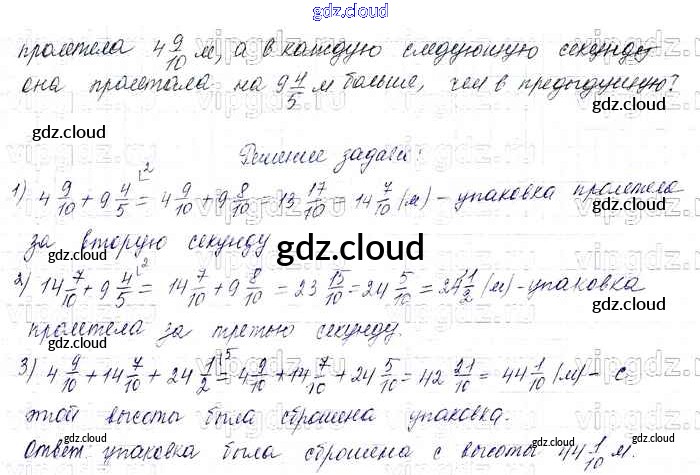 gdz.cloud
пролетела 4 9/10 м, а в каждую следующую секунду
она пролетала на 9 4/5 м больше, чем в предыдущую?
gdz.cloud gdz.cloud
Решение задачи:
1) 4 9/10 + 9 4/5 = 4 9/10 + 9 8/10 = 13 17/10 = 14 7/10 (м) – упаковка пролетела
gdz.cloud
за вторую секунду
gdz.cloud
gdz.cloud
2) 14 7/10 + 9 4/5 = 14 7/10 + 9 8/10 = 23 15/10 = 24 5/10 = 24 1/2 (м) – упаковка
gdz.cloud
пролетела за третью секунду.
gdz.cloud
3) 4 9/10 + 14 7/10 + 24 1/2 = 4 9/10 + 14 7/10 + 24 5/10 = 42 21/10 = 44 1/10 (м) – с
gdz.cloud
этой высоты была сброшена упаковка.
gdz.cloud gdz.cloud
Ответ: упаковка была сброшена с высоты 44 1/10 м.
gdz.cloud